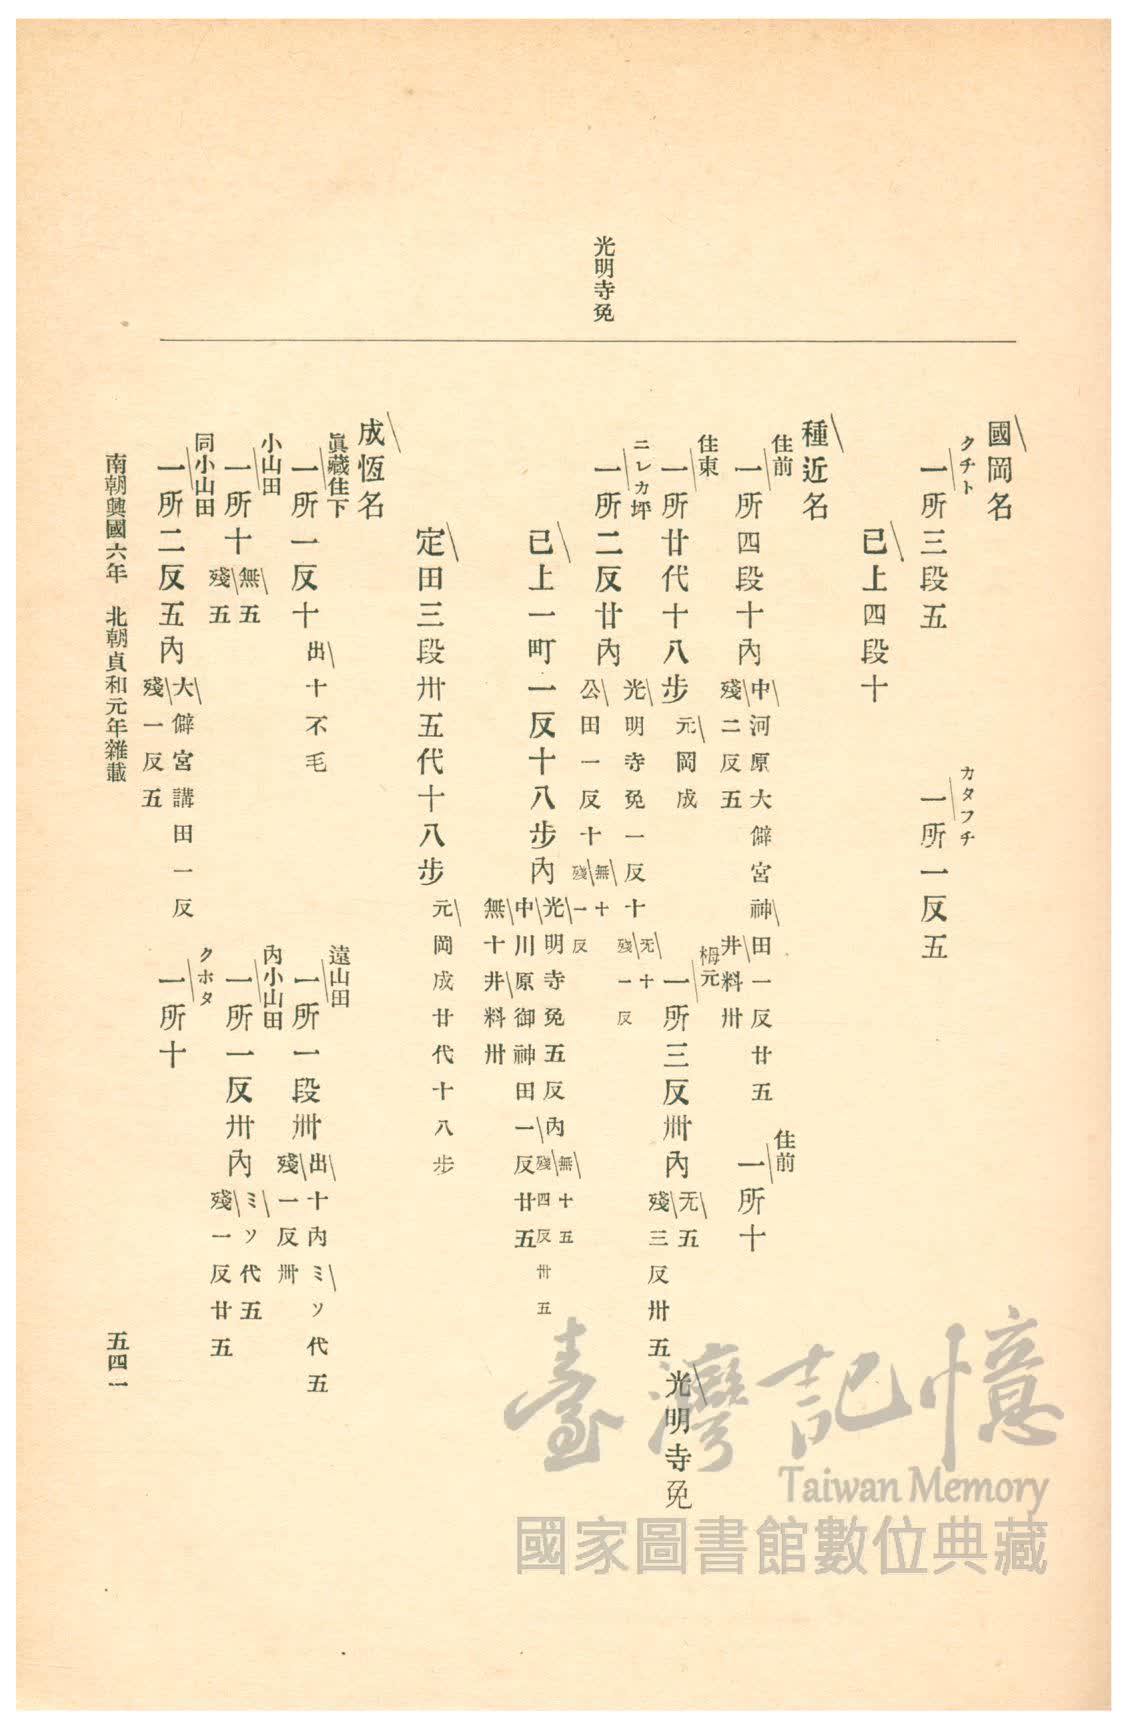 光明寺免
國岡名
クチト
一所三段五
カタフチ
一所一反五
已上四段十
種近名
佳前
一所四段十內
中河原大僻宮神田一反廿五
井料卅
殘二反五
佳前
一所十
佳東
一所廿代十八步
元岡成
栂元
一所三反卌內
无五
殘三反卅五
光明寺免
ニレカ坪
一所二反廿內
光明寺免一反十
无十
殘一反
公田一反十
無十
殘一反
已上一町一反十八步內
光明寺免五反內
無十五
殘四反卅五
中川原御神田一反廿五
無十井料卅
定田三段卅五代十八步
元岡成廿代十八步
成恆名
眞藏佳下
一所一反十
出十不毛
遠山田
一所一段卌
出十內ミソ代五
殘一反卌
小山田
一所十
無五
殘五
內小山田
一所一反卅內
ミソ代五
殘一反廿五
同小山田
一所二反五內
大僻宮講田一反
殘一反五
クホタ
一所十
南朝興國六年　北朝貞和元年雜載
五四一
臺灣記憶
Taiwan Memory
國家圖書館數位典藏